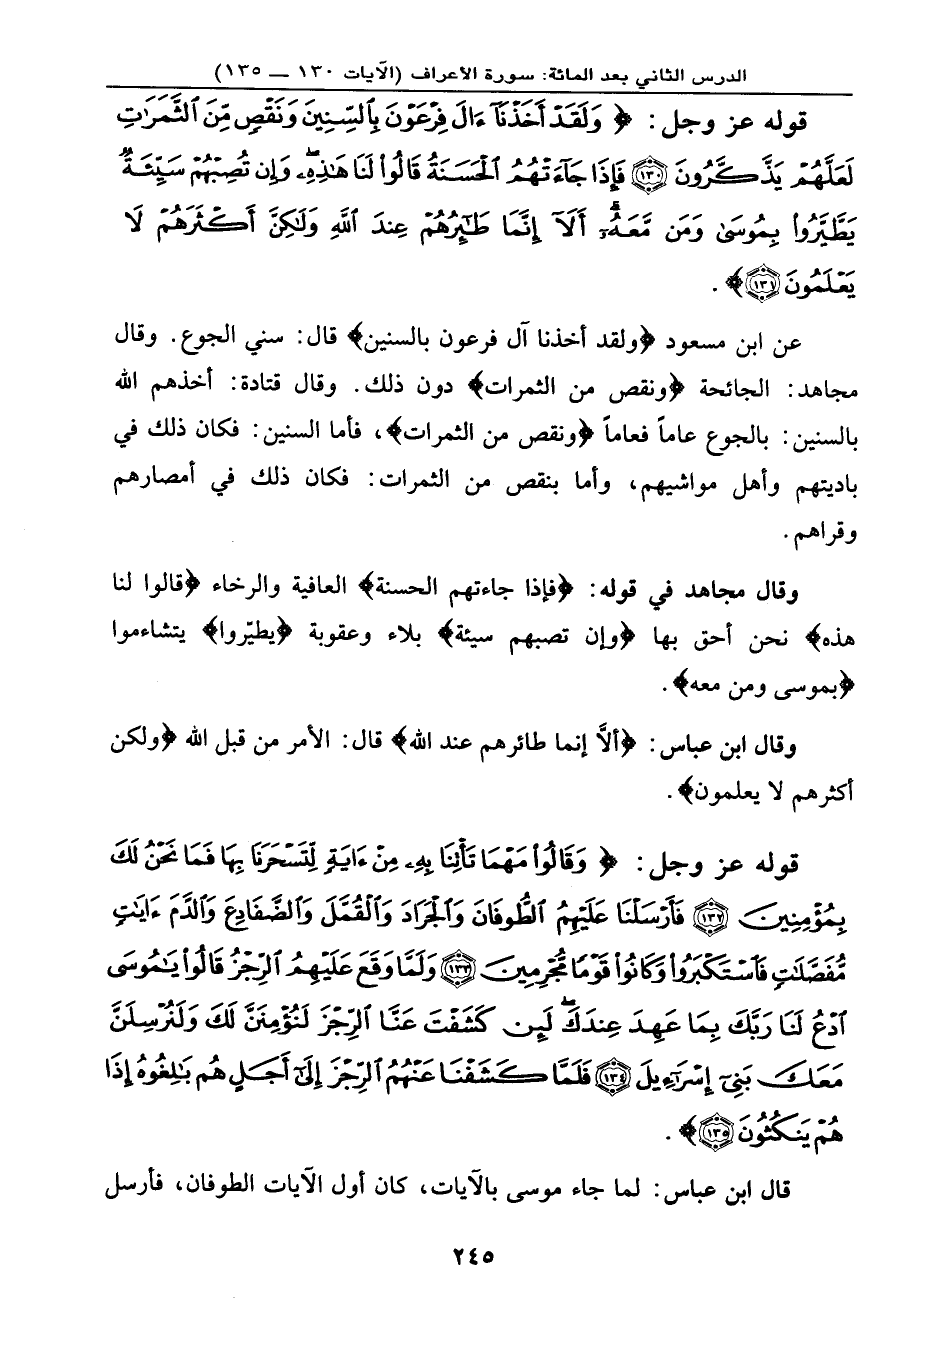 الدرس الثاني بعد المائة: سورة الأعراف (الآيات ١٣٠ — ١٣٥)
قوله عز وجل: ﴿ وَلَقَدْ أَخَذْنَآ ءَالَ فِرْعَوْنَ بِٱلسِّنِينَ وَنَقْصٍ مِّنَ ٱلثَّمَرَٰتِ
لَعَلَّهُمْ يَذَّكَّرُونَ ﴿١٣٠﴾ فَإِذَا جَآءَتْهُمُ ٱلْحَسَنَةُ قَالُوا۟ لَنَا هَٰذِهِۦ ۖ وَإِن تُصِبْهُمْ سَيِّئَةٌ
يَطَّيَّرُوا۟ بِمُوسَىٰ وَمَن مَّعَهُۥٓ ۗ أَلَآ إِنَّمَا طَٰٓئِرُهُمْ عِندَ ٱللَّهِ وَلَٰكِنَّ أَكْثَرَهُمْ لَا
يَعْلَمُونَ ﴿١٣١﴾ ﴾ .
عن ابن مسعود ﴿ولقد أخذنا آل فرعون بالسنين﴾ قال: سني الجوع. وقال
مجاهد: الجائحة ﴿ونقص من الثمرات﴾ دون ذلك. وقال قتادة: أخذهم الله
بالسنين: بالجوع عاماً فعاماً ﴿ونقص من الثمرات﴾، فأما السنين: فكان ذلك في
باديتهم وأهل مواشيهم، وأما بنقص من الثمرات: فكان ذلك في أمصارهم
وقراهم.
وقال مجاهد في قوله: ﴿فإذا جاءتهم الحسنة﴾ العافية والرخاء ﴿قالوا لنا
هذه﴾ نحن أحق بها ﴿وإن تصبهم سيئة﴾ بلاء وعقوبة ﴿يطيّروا﴾ يتشاءموا
﴿بموسى ومن معه﴾.
وقال ابن عباس: ﴿ألاَّ إنما طائرهم عند الله﴾ قال: الأمر من قبل الله ﴿ولكن
أكثرهم لا يعلمون﴾.
قوله عز وجل: ﴿ وَقَالُوا۟ مَهْمَا تَأْتِنَا بِهِۦ مِنْ ءَايَةٍ لِّتَسْحَرَنَا بِهَا فَمَا نَحْنُ لَكَ
بِمُؤْمِنِينَ ﴿١٣٢﴾ فَأَرْسَلْنَا عَلَيْهِمُ ٱلطُّوفَانَ وَٱلْجَرَادَ وَٱلْقُمَّلَ وَٱلضَّفَادِعَ وَٱلدَّمَ ءَايَٰتٍ
مُّفَصَّلَٰتٍ فَٱسْتَكْبَرُوا۟ وَكَانُوا۟ قَوْمًا مُّجْرِمِينَ ﴿١٣٣﴾ وَلَمَّا وَقَعَ عَلَيْهِمُ ٱلرِّجْزُ قَالُوا۟ يَٰمُوسَى
ٱدْعُ لَنَا رَبَّكَ بِمَا عَهِدَ عِندَكَ ۖ لَئِن كَشَفْتَ عَنَّا ٱلرِّجْزَ لَنُؤْمِنَنَّ لَكَ وَلَنُرْسِلَنَّ
مَعَكَ بَنِىٓ إِسْرَٰٓءِيلَ ﴿١٣٤﴾ فَلَمَّا كَشَفْنَا عَنْهُمُ ٱلرِّجْزَ إِلَىٰٓ أَجَلٍ هُم بَٰلِغُوهُ إِذَا
هُمْ يَنكُثُونَ ﴿١٣٥﴾ ﴾ .
قال ابن عباس: لما جاء موسى بالآيات، كان أول الآيات الطوفان، فأرسل
٢٤٥